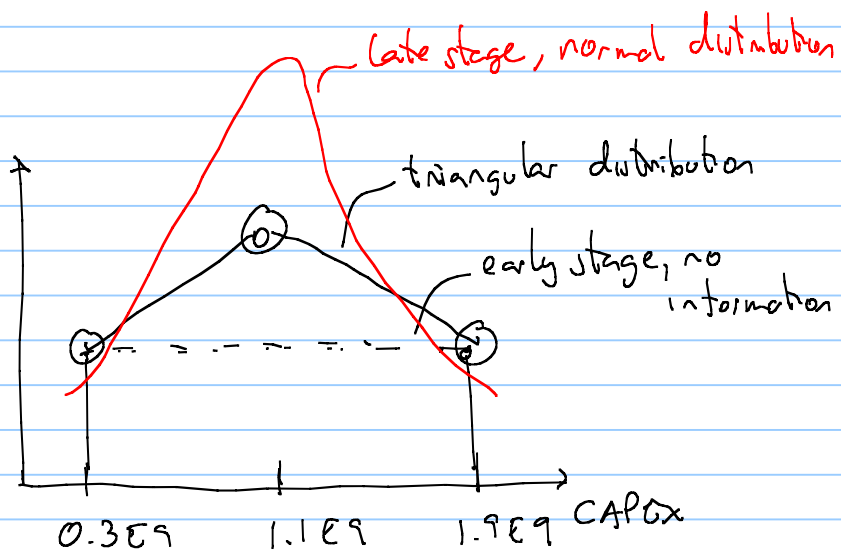 late stage, normal distribution
triangular distribution
early stage, no
information
0.3E9
1.1E9
1.9E9
CAPEX